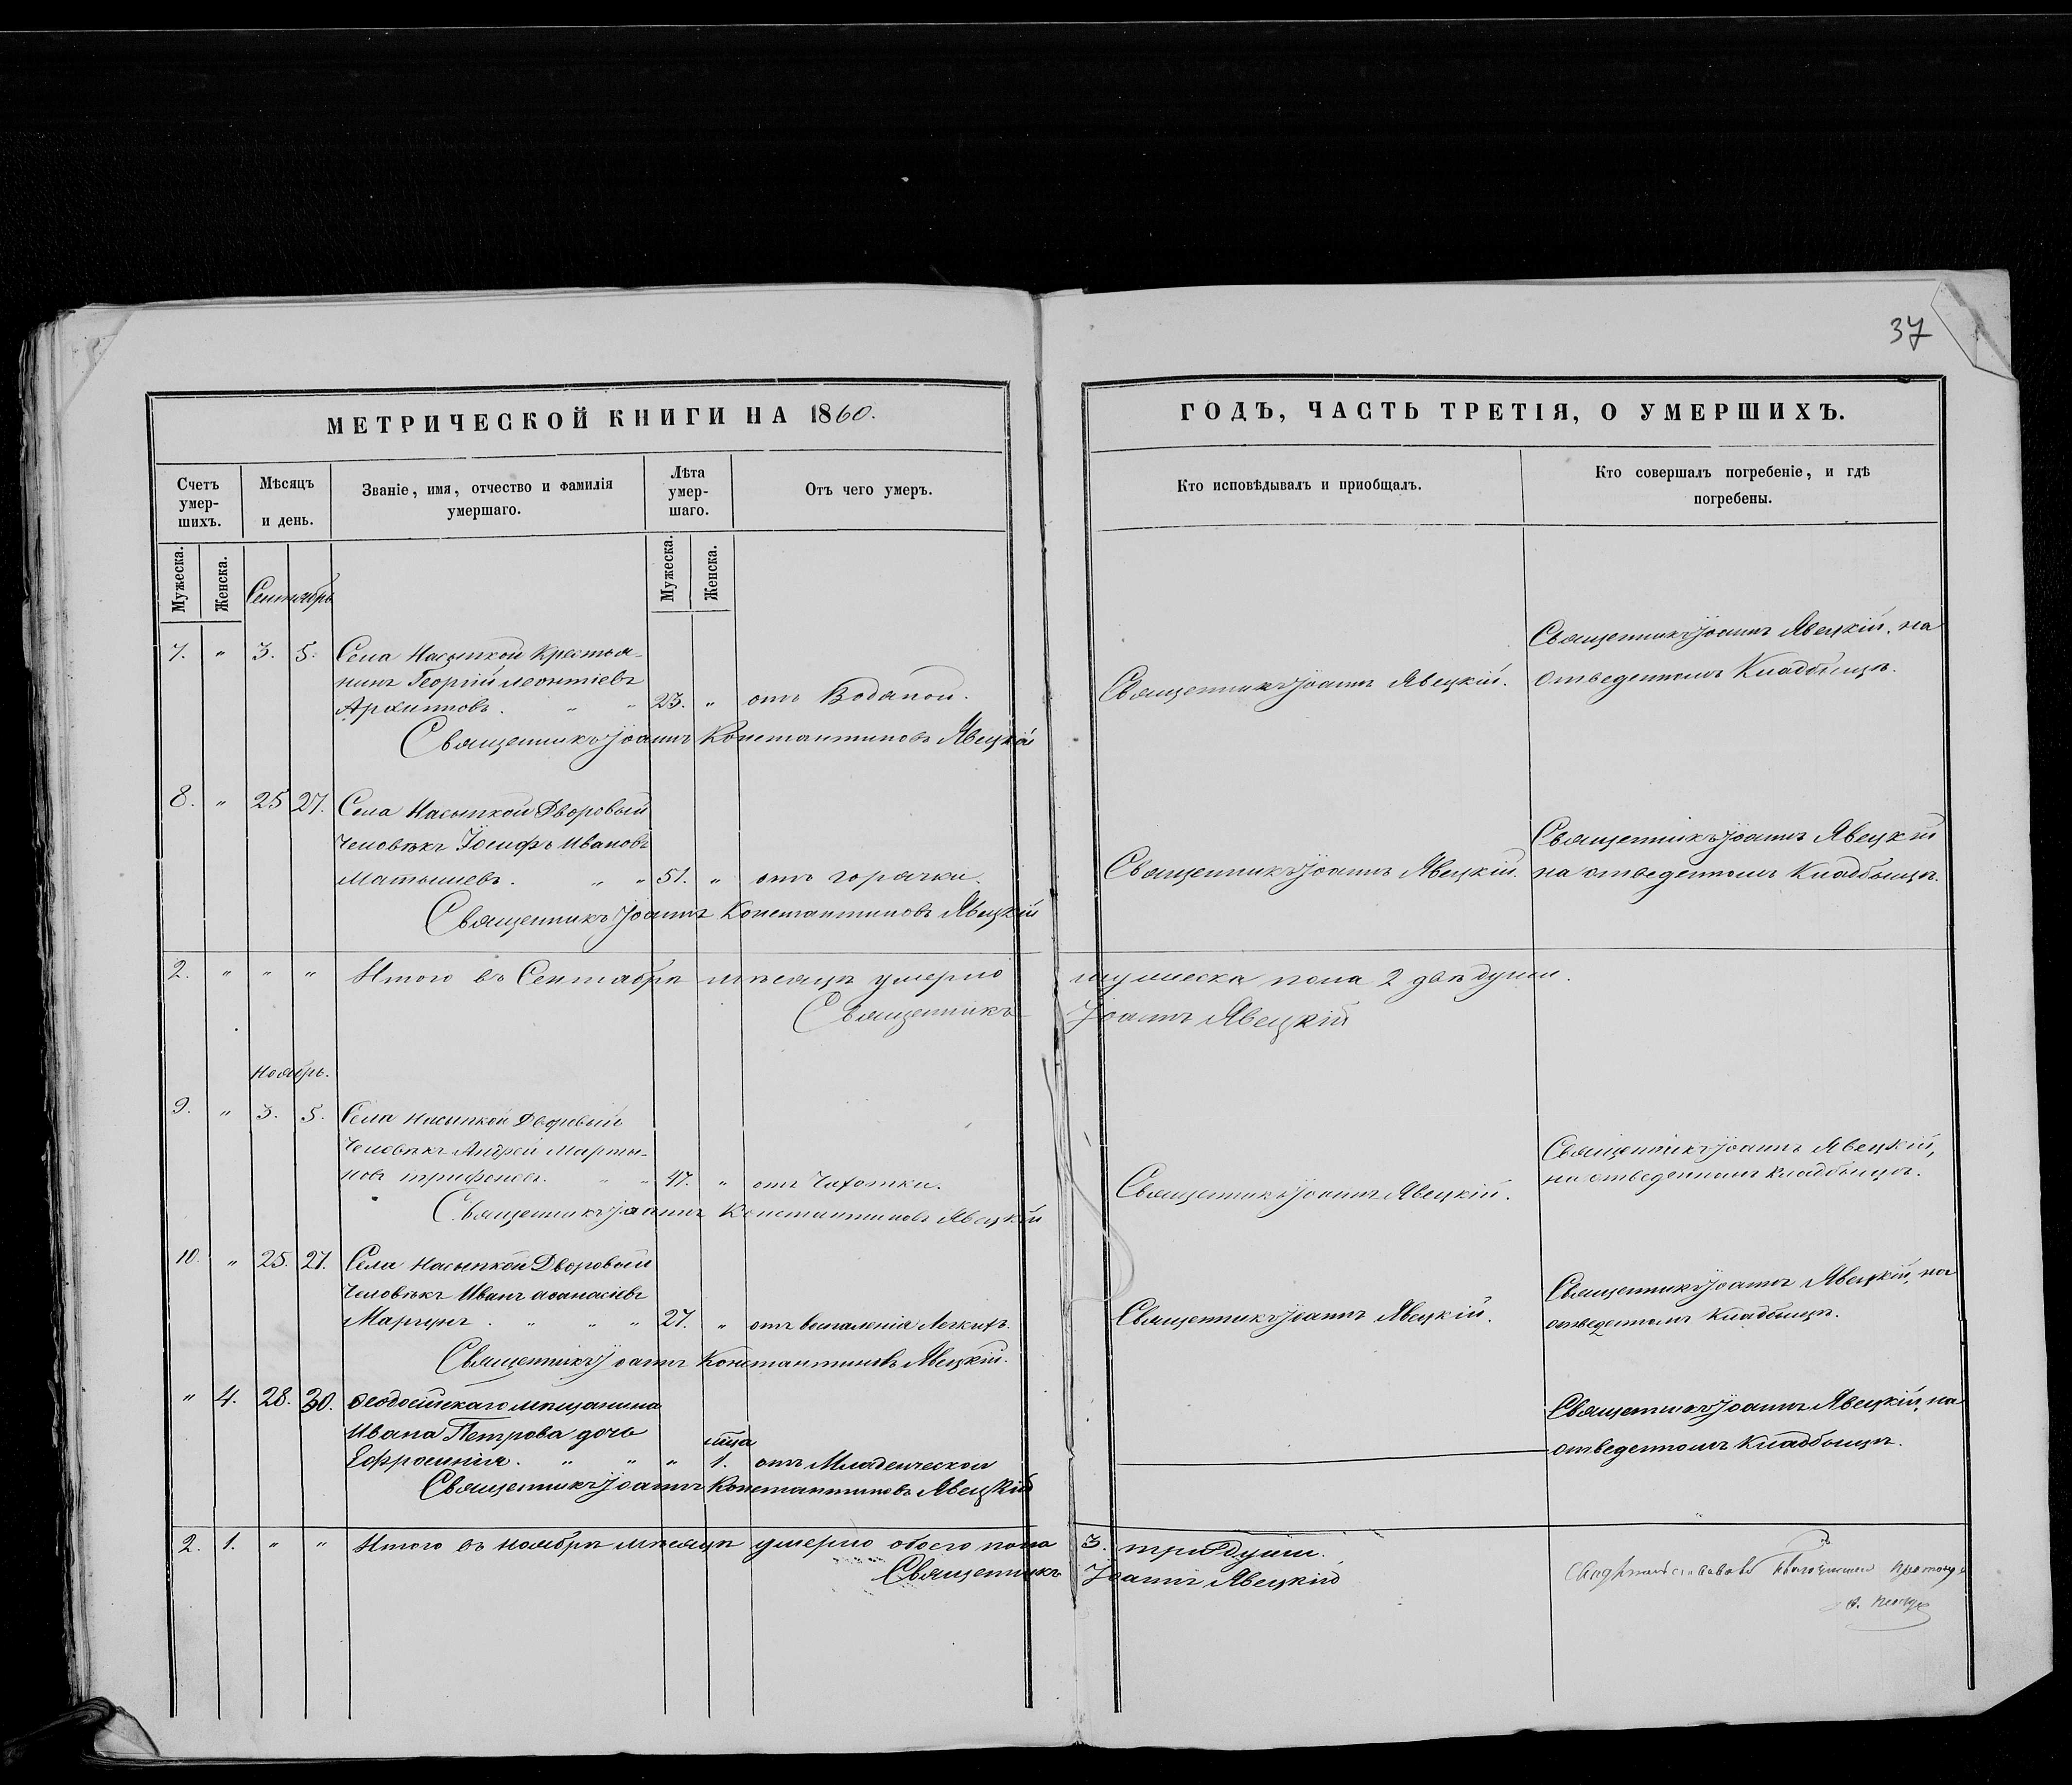 37
МЕТРИЧЕСКОЙ КНИГИ НА 1860.
Счетъ умер-шихъ.
Мѣсяцъ и день.
Званіе, имя, отчество и фамилія умершаго.
Лѣта умер-шаго.
Отъ чего умеръ.
Мужеска.
Женска.
Мужеска.
Женска.
Сентябрь
7. " 3. 5. Села Насыпкой Крестья-
нинъ Георгій Леонтіевъ
Архиповъ. " " 23. " отъ Водяной.
Священникъ Іоаннъ Константиновъ Явецкій
8. " 25 27. Села Насыпкой Дворовый
Человѣкъ Іосифъ Ивановъ
Матышевъ. " " 51. " отъ горячки.
Священникъ Іоаннъ Константиновъ Явецкій
2. " " " Итого въ Сентябрѣ мѣсяцѣ умерло
Священникъ
Ноябрь.
9. " 3. 5. Села Насыпкой Дворовый
Человѣкъ Андрей Марты-
новъ Трифоновъ. " " 47. " отъ Чахотки.
Священникъ Іоаннъ Константиновъ Явецкій
10. " 25. 27. Села Насыпкой Дворовый
Человѣкъ Иванъ Аѳанасіевъ
" " " 27. " отъ воспаленія Легкихъ.
Священникъ Іоаннъ Константиновъ Явецкій.
" 4. 28. 30. Ѳеодосійскаго мѣщанина
Ивана Петрова дочь
мца
Ефросинія. " " " 1. отъ Младенческой
Священникъ Іоаннъ Константиновъ Явецкій
2. 1. " " Итого въ Ноябрѣ мѣсяцѣ умерло обоего пола
Священникъ
ГОДЪ, ЧАСТЬ ТРЕТІЯ, О УМЕРШИХЪ.
Кто исповѣдывалъ и приобщалъ.
Кто совершалъ погребеніе, и гдѣ погребены.
Священникъ Іоаннъ Явецкій.
Священникъ Іоаннъ Явецкій, на
отведенномъ Кладбищѣ.
Священникъ Іоаннъ Явецкій.
Священникъ Іоаннъ Явецкій
на отведенномъ Кладбищѣ.
мужеска пола 2 двѣ души.
Іоаннъ Явецкій
Священникъ Іоаннъ Явецкій.
Священникъ Іоаннъ Явецкій,
на отведенномъ кладбищѣ.
Священникъ Іоаннъ Явецкій.
Священникъ Іоаннъ Явецкій, на
отведенномъ Кладбищѣ.
Священникъ Іоаннъ Явецкій, на
отведенномъ Кладбищѣ.
3. три души.
Іоаннъ Явецкій
Свидѣтельствовалъ Благочинный